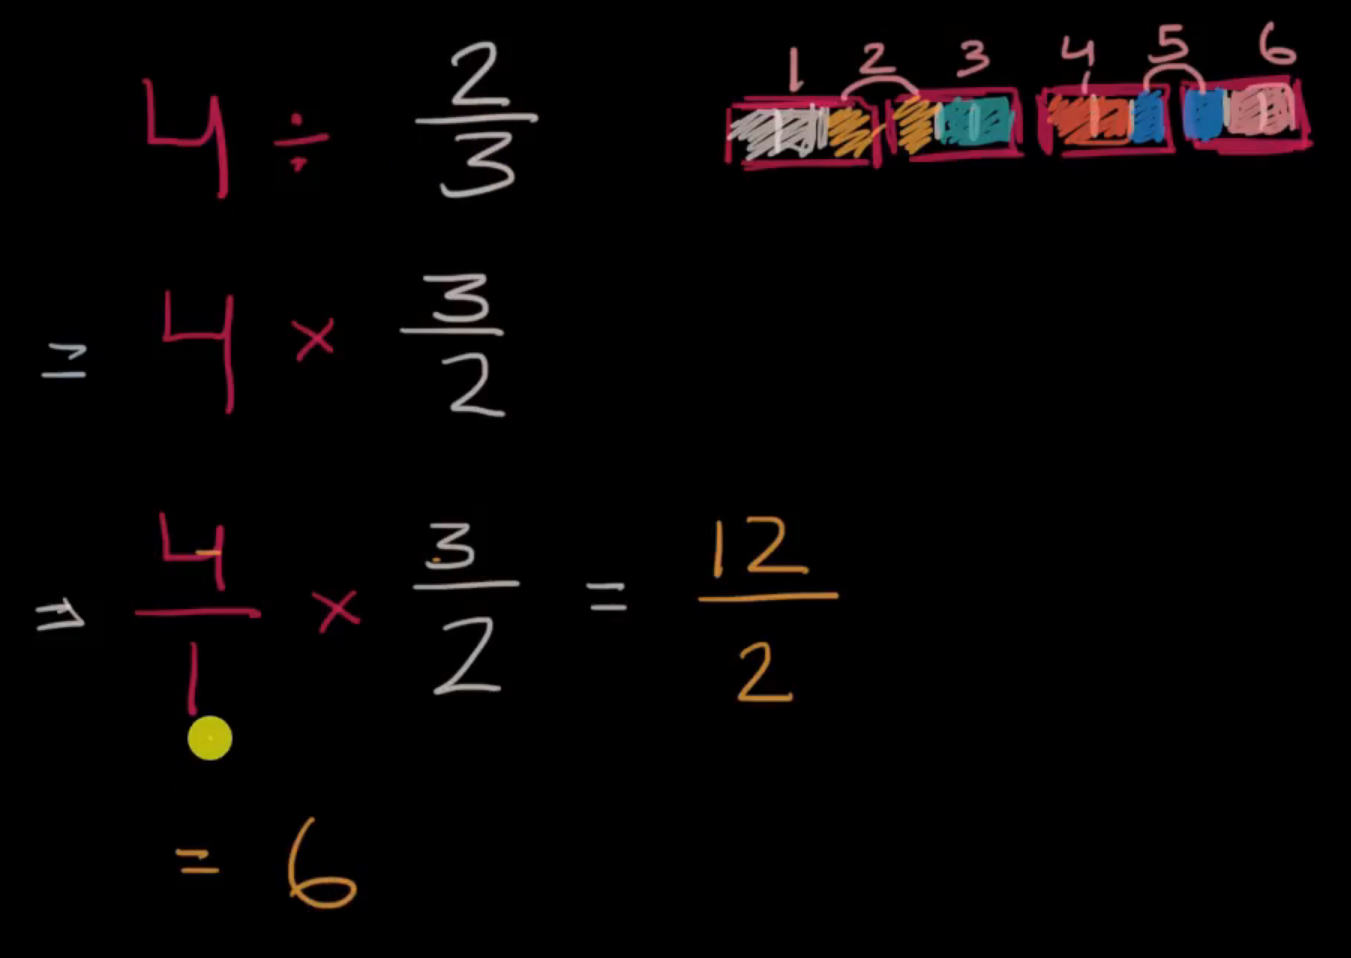 4 ÷ 2/3
1 2 3 4 5 6
= 4 × 3/2
= 4/1 × 3/2 = 12/2
= 6